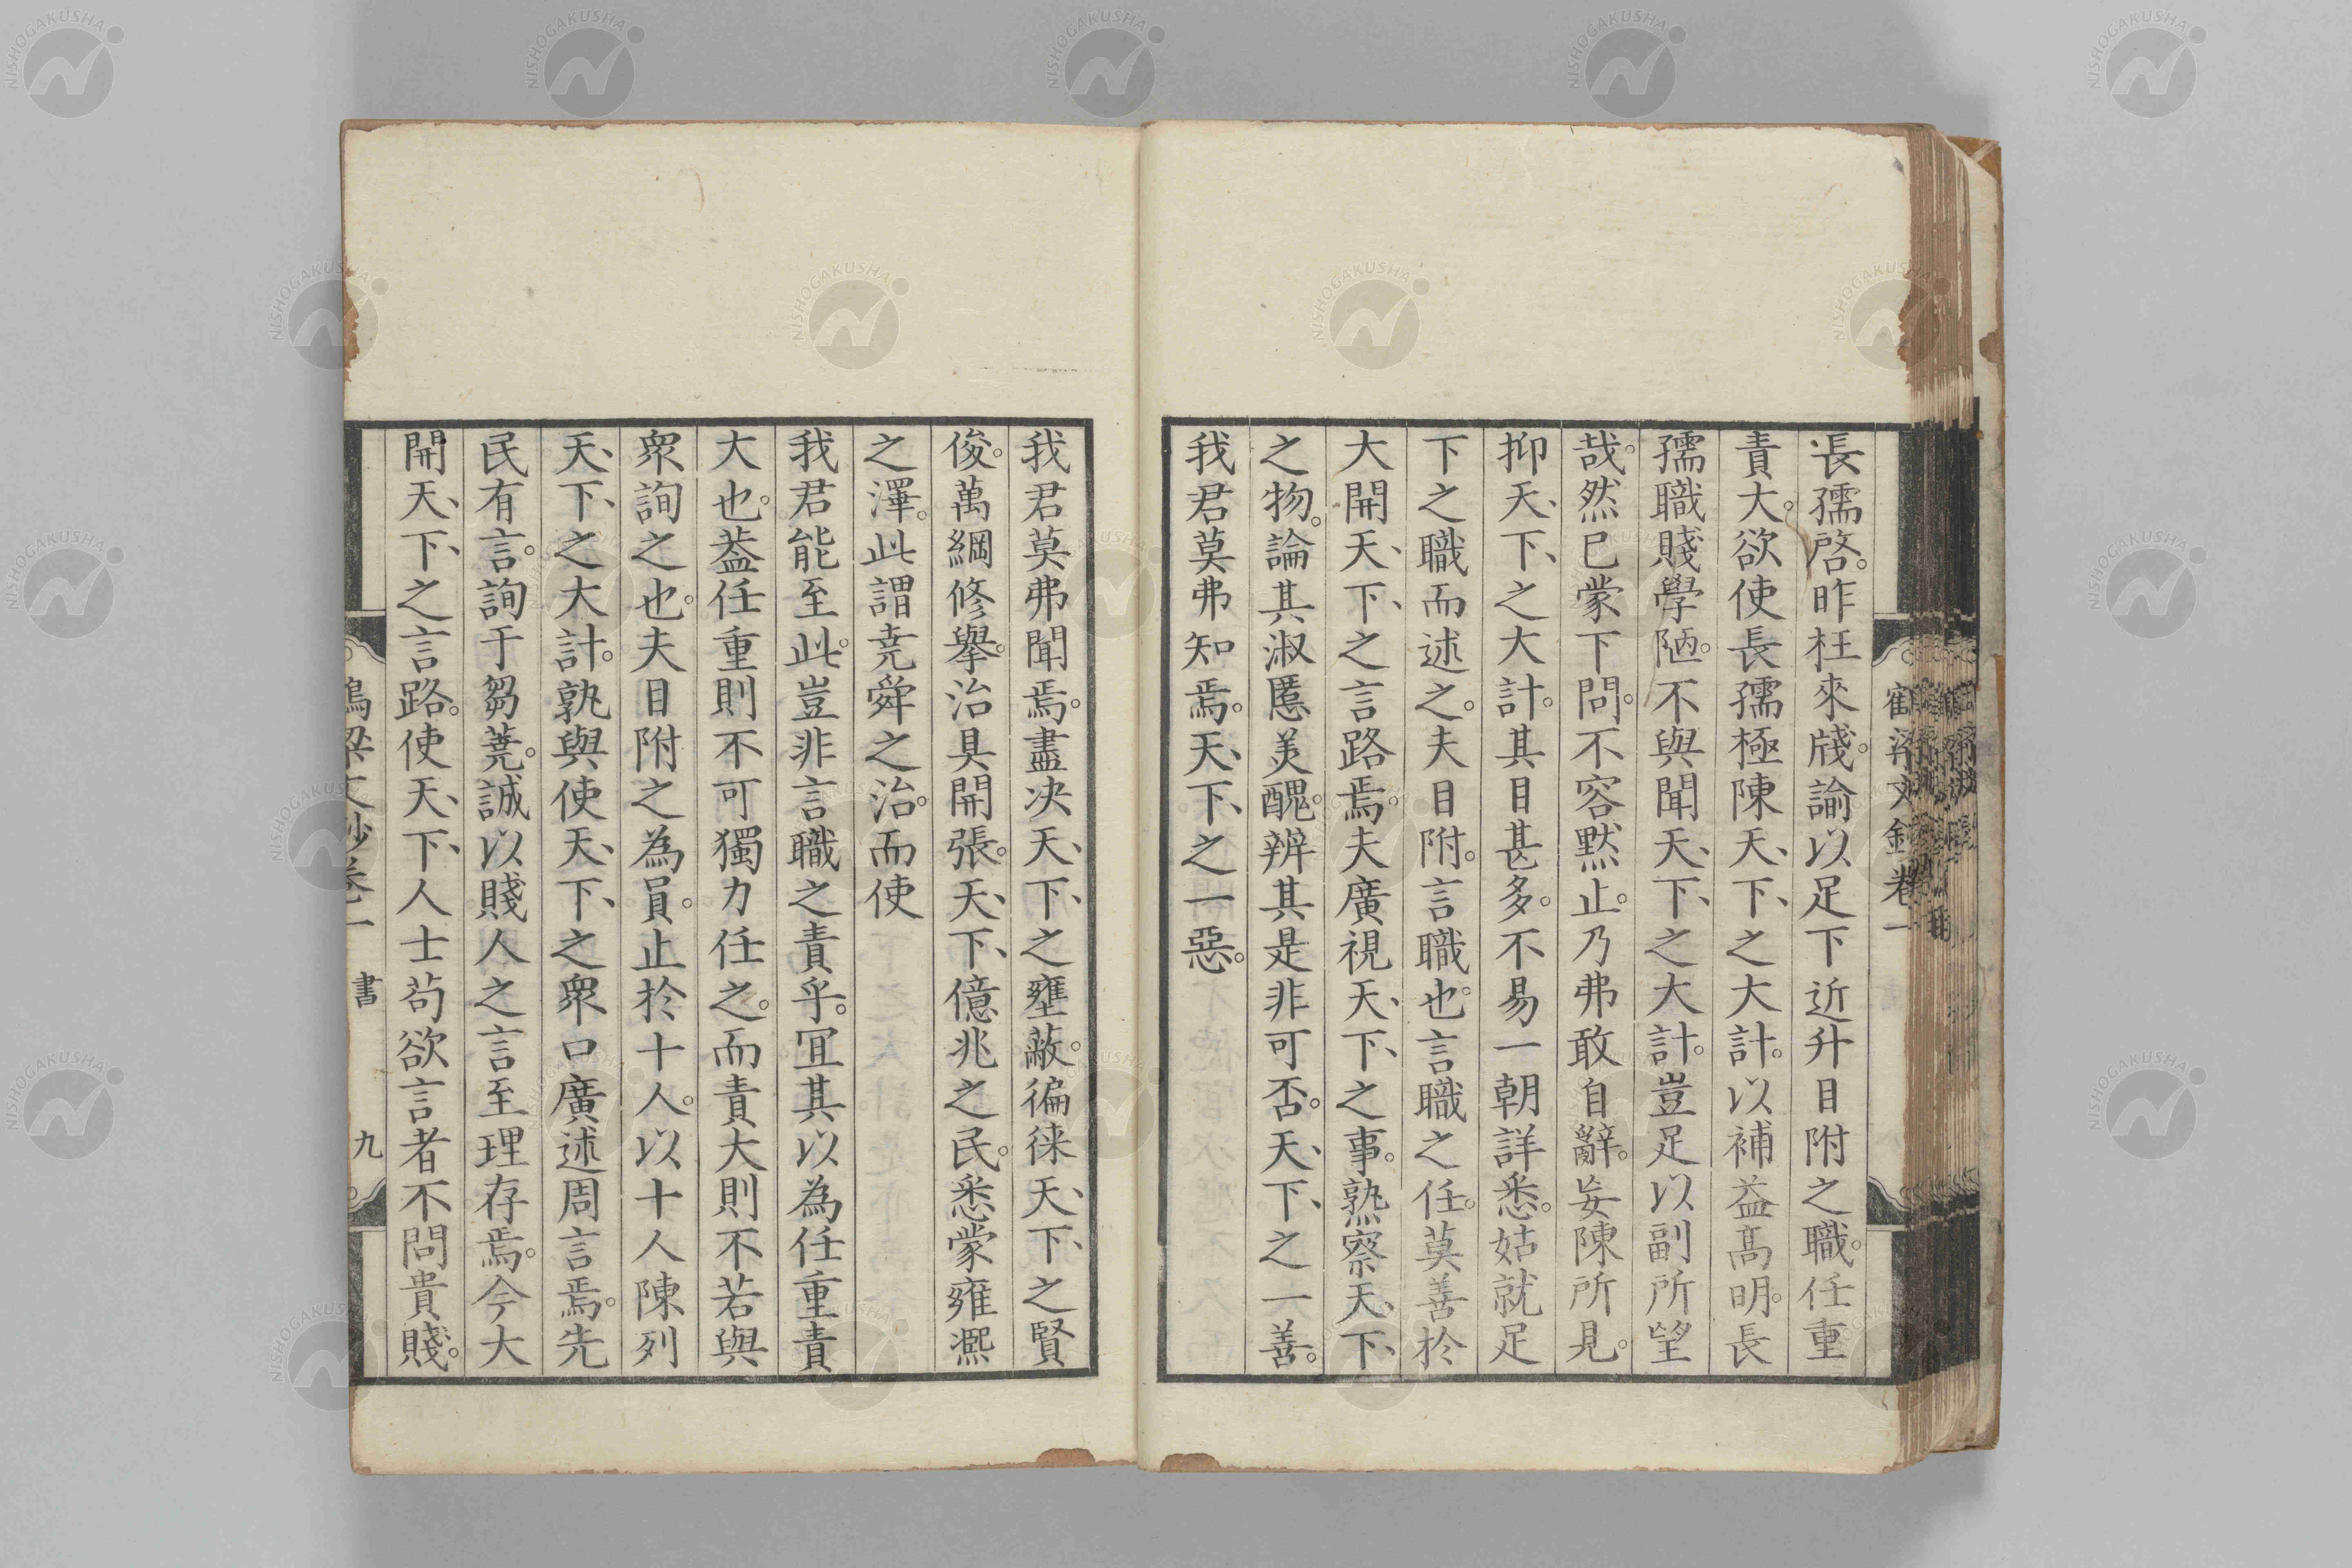 長孺啓。昨枉來牋。諭以足下近升目附之職。任重
責大。欲使長孺極陳天、下、之大計。以補益高明。長
孺職賤學陋。不與聞天、下、之大計。豈足以副所望
哉。然已蒙下問。不容默止。乃弗敢自辭。妄陳所見。
抑天、下、之大計。其目甚多。不易一朝詳悉。姑就足
下之職而述之。夫目附。言職也。言職之任。莫善於
大開天、下、之言路焉。夫廣視天、下、之事。熟察天、下、
之物。論其淑慝美醜。辨其是非可否。天、下、之一善。
我君莫弗知焉。天、下、之一惡。
我君莫弗聞焉。盡决天、下、之壅蔽。徧徠天、下、之賢
俊。萬綱修擧。治具開張。天、下、億兆之民。悉蒙雍凞
之澤。此謂堯舜之治。而使
我君能至此。豈非言職之責乎。冝其以為任重責
大也。葢任重則不可獨力任之。而責大則不若與
衆詢之也。夫目附之為員。止於十人。以十人陳列
天、下、之大計。孰與使天、下、之衆口廣述周言焉。先
民有言。詢于芻蕘。誠以賤人之言至理存焉。今大
開天、下、之言路。使天、下、人士苟欲言者不問貴賤。
鶴梁文鈔卷一 書 九